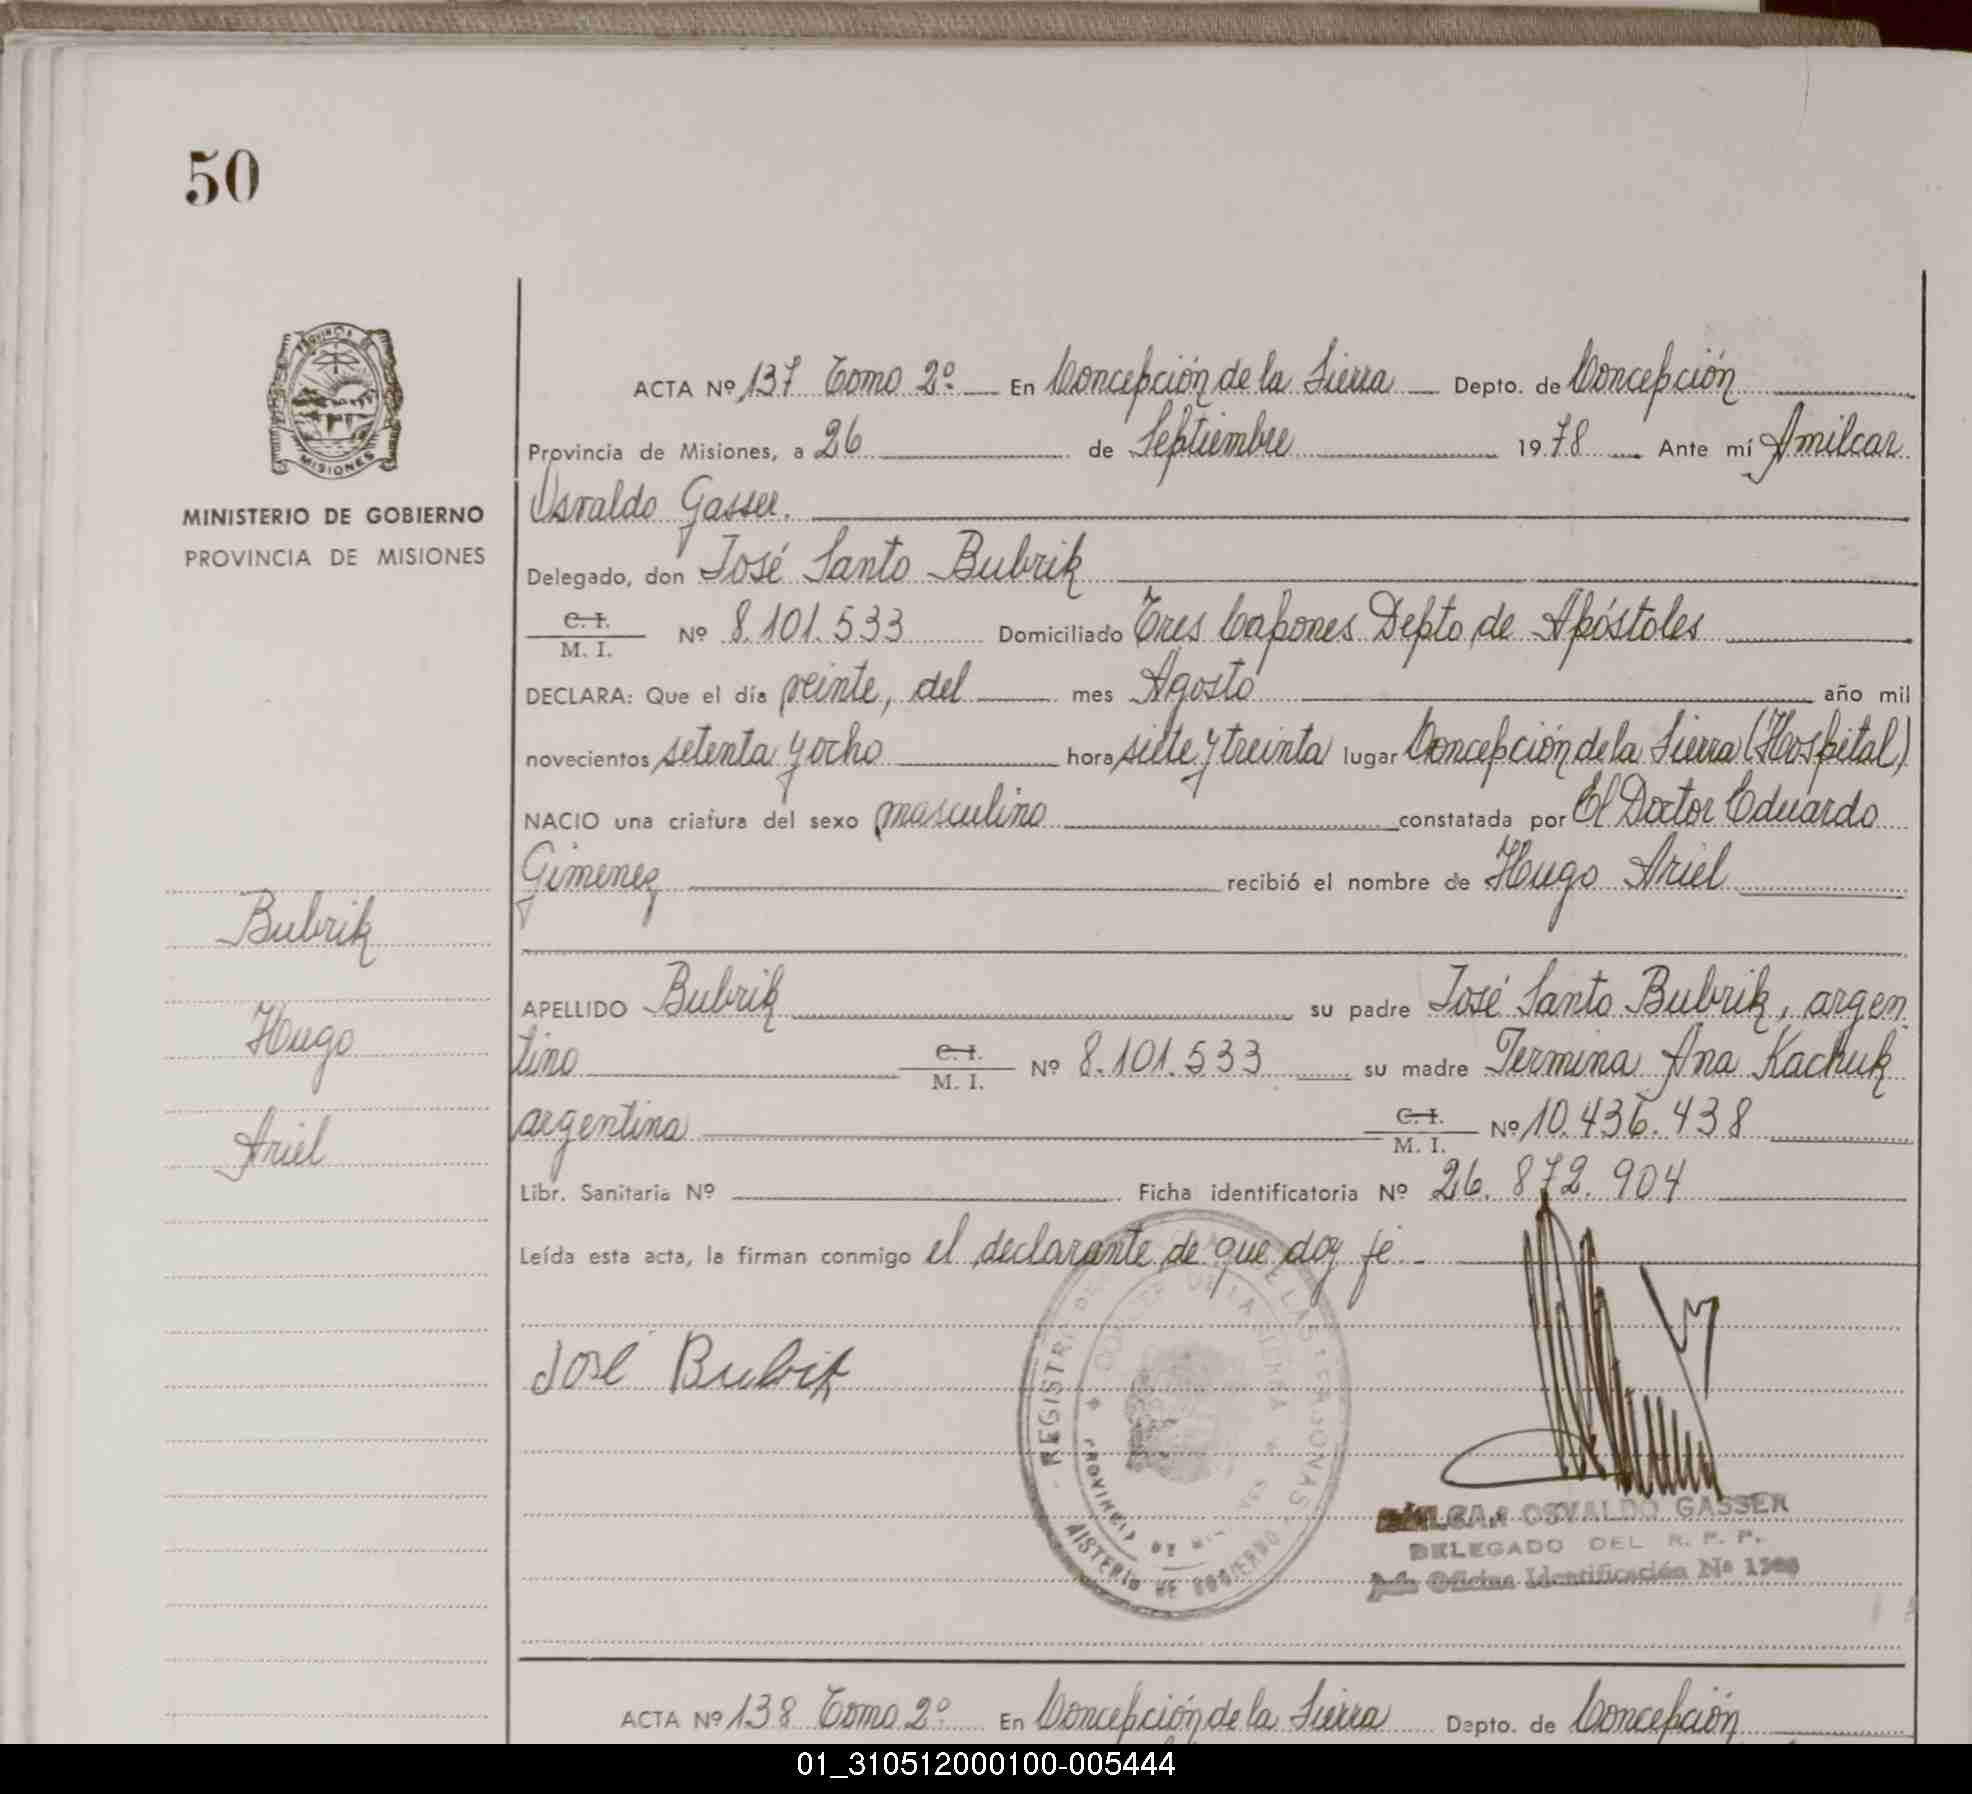 50
PROVINCIA DE
MISIONES
MINISTERIO DE GOBIERNO
PROVINCIA DE MISIONES
Bubrik
Hugo
Ariel
ACTA Nº 137 Tomo 2º En Concepción de la Sierra Depto. de Concepción
Provincia de Misiones, a 26 de Septiembre 1978 Ante mí Amilcar
Osvaldo Gasser.
Delegado, don José Santo Bubrik
C. I.
M. I. Nº 8.101.533 Domiciliado Tres Capones Depto de Apóstoles
DECLARA: Que el día veinte, del mes Agosto año mil
novecientos setenta y ocho hora siete y treinta lugar Concepción de la Sierra (Hospital)
NACIO una criatura del sexo masculino constatada por El Doctor Eduardo
Gimenez recibió el nombre de Hugo Ariel
APELLIDO Bubrik su padre José Santo Bubrik, argen
tino C. I. M. I. Nº 8.101.533 su madre Termina Ana Kachuk
argentina C. I. M. I. Nº 10.436.438
Libr. Sanitaria Nº Ficha identificatoria Nº 26.872.904
Leída esta acta, la firman conmigo el declarante de que doy fe
José Bubrik
REGISTRO DE LAS PERSONAS
DE LA SIERRA
PROVINCIA DE MISIONES
MINISTERIO DE GOBIERNO
AMILCAR OSVALDO GASSER
DELEGADO DEL R. P. P.
Jefe Oficina Identificación Nº
ACTA Nº 138 Tomo 2º En Concepción de la Sierra Depto. de Concepción
01_310512000100-005444